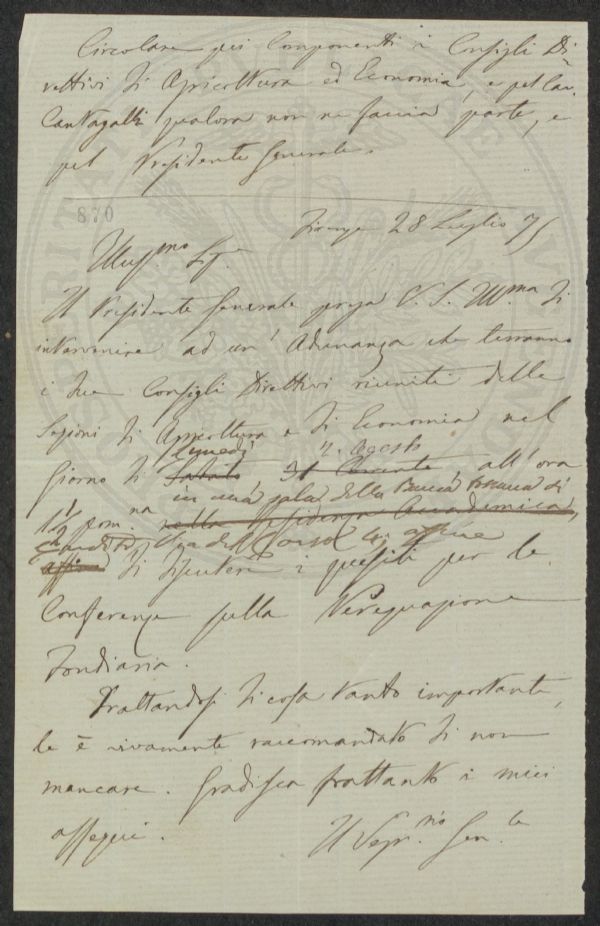 Circolare pei Componenti i Consigli Di-
rettivi di Agricoltura ed Economia, e pel Cav.
Cantagalli qualora non ne faccia parte, e
pel Presidente Generale.
870
Firenze 28 Luglio 75
Illuss.mo Sig.e
Il Presidente Generale prega V. S. Ill.ma di
intervenire ad un' Adunanza che terranno
i due Consigli Direttivi riuniti delle
Sezioni di Agricoltura e di Economia nel
Lunedì 2. Agosto
giorno di Sabato, 31 Corrente, all' ora
in una sala della Banca di
1 1/2 pom.na nella Residenza Accademica,
Via del Corso affine
affine di discutere i quesiti per le
Conferenze sulla Perequazione
Fondiaria.
Trattandosi di cosa tanto importante,
le è vivamente raccomandato di non
mancare. Gradisca frattanto i miei
ossequi. Il Segr.rio Gen.le